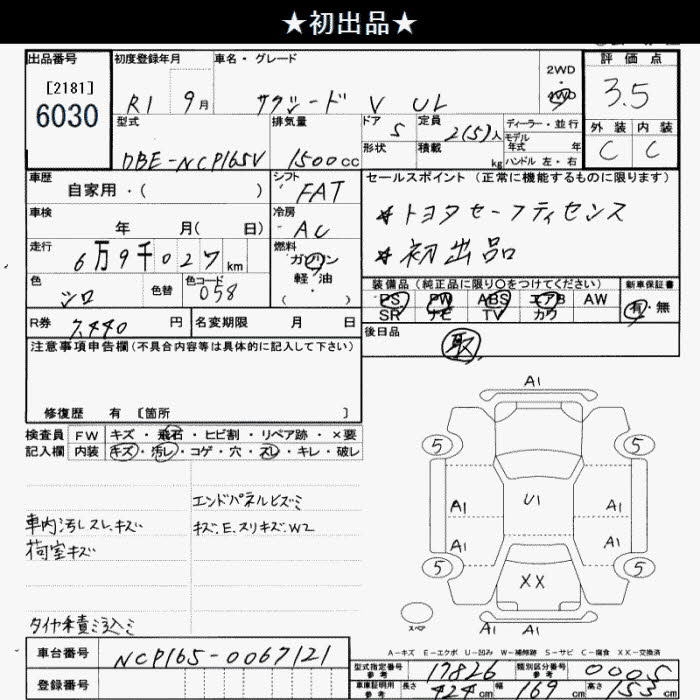 ★初出品★
出品番号
[2181]
6030
初度登録年月
R1 9月
車名・グレード
サクシード V UL
2WD
・
4WD
評価点
3.5
外装 内装
C C
型式
DBE-NCP165V
排気量
1500cc
ドア
5
形状
定員
2(5)人
積載
kg
ディーラー・並行
モデル
年式 年
ハンドル 左・右
車歴
自家用・( )
シフト
FAT
車検
年 月( 日)
冷房
AC
走行
6万9千027km
燃料
ガソリン
軽・油
( )
色
シロ
色替
色コード
058
R券
7,440円
名変期限 月 日
セールスポイント(正常に機能するものに限ります)
★トヨタセーフティセンス
★初出品
装備品(純正品に限り○をつけてください)
PS PW ABS エアB AW
SR ナビ TV カワ
新車保証書
有・無
後日品
取
注意事項申告欄(不具合内容等は具体的に記入して下さい)
修復歴 有 〔箇所 〕
検査員
記入欄
FW キズ・飛石・ヒビ割・リペア跡・×要
内装 キズ・汚レ・コゲ・穴・スレ・キレ・破レ
エンドパネルヒズミ
車内汚レスレ、キズ
キズ.E.スリキズ.W2
荷室キズ
タイヤ積ミ込ミ
A1
5 5
U1
A1 A1
A1 A1
5 5
XX
スペア
A1 A1
A-キズ E-エクボ U-凹み W-補修跡 S-サビ C-腐食 XX-交換済
車台番号
NCP165-0067121
登録番号
型式指定番号
参考
17826
類別区分番号
参考
0005
車庫証明用
参考
長さ 424cm
幅 169cm
高さ 155cm